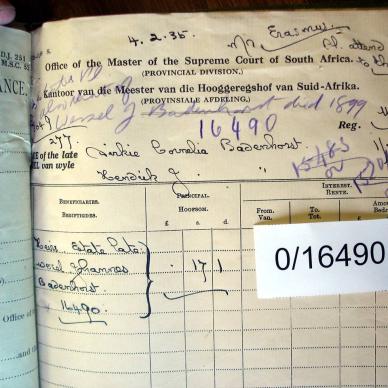 D.J. 251
M.S.C. 52
ANCE,
4. 2. 35.
Erasmus
Pl. attend
to th
Office of the Master of the Supreme Court of South Africa.
(PROVINCIAL DIVISION.)
Kantoor van die Meester van die Hooggeregshof van Suid-Afrika.
(PROVINSIALE AFDELING.)
Wessel J Badenhorst died 1899
16490
Reg.
277
E of the late
el van wyle
Cornelia Badenhorst
15483
BENEFICIARIES.
BENEFISIJES.
PRINCIPAL.
HOOFSOM.
£ s. d.
INTEREST.
RENTE.
From.
Van.
To.
Tot.
Amou
Bed
£
Heirs Estate late
Johannes
Badenhorst
16490
17 1
0/16490
Office of
and